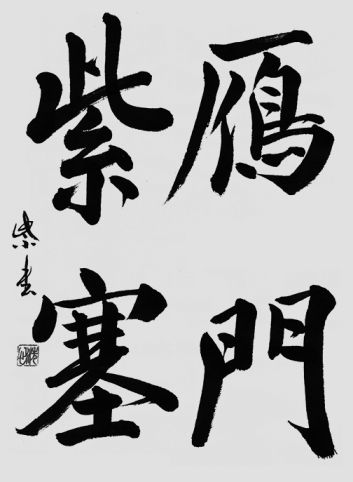 鴈門
紫塞
紫